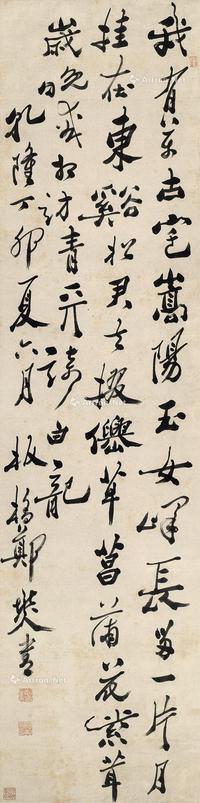 我有万古宅嵩陽玉女峰長留一片月
挂在東谿松君去掇僊草菖蒲花紫茸
歲晚或相訪青天騎白龍
乾隆丁卯夏六月 板橋鄭燮書